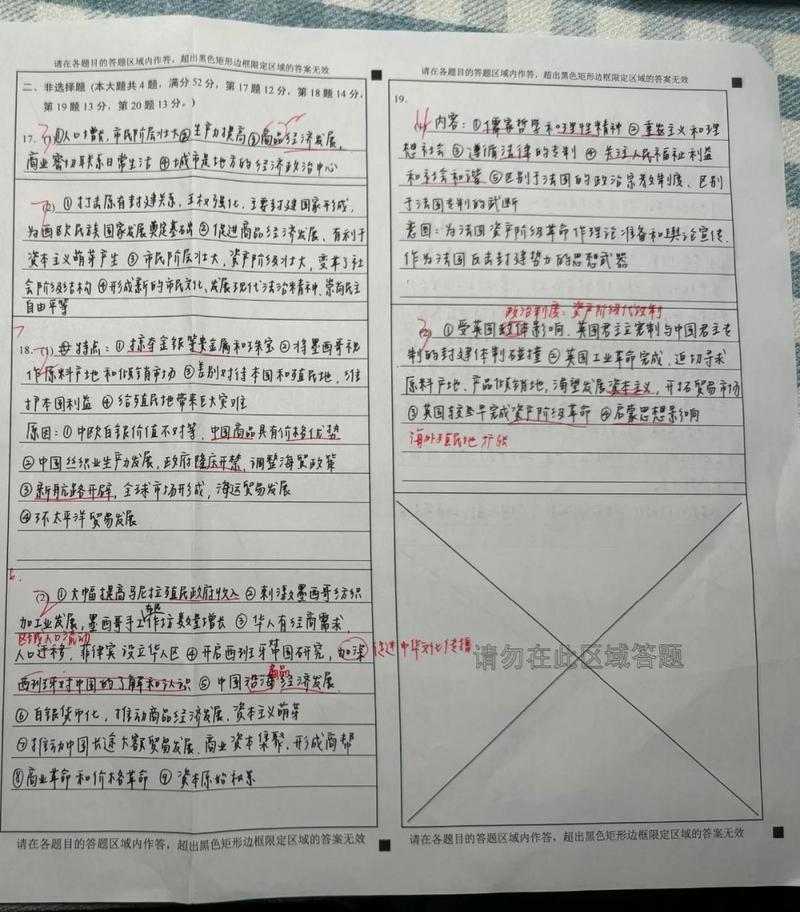 请在各题目的答题区域内作答，超出黑色矩形边框限定区域的答案无效
二、非选择题（本大题共4题，满分52分，第17题12分，第18题14分，
第19题13分，第20题13分。）
17.(1)①人口增长，市民阶层壮大②生产力提高③商品经济发展，
商业密切联系日常生活 ④城市是地方的经济政治中心
(2) ①打击原有封建关系，王权强化，主要封建国家形成，
为西欧民族国家发展奠定基础②促进商品经济发展，有利于
资本主义萌芽产生 ③市民阶层壮大，资产阶级壮大，变革了社
会阶级结构 ④形成新的市民文化，发展了现代法治精神，崇尚民主
自由平等
7
18.(1) 特点：①掠夺金银等贵金属和珠宝②将墨西哥视
作原料产地和倾销市场 ③差别对待本国和殖民地，维
护本国利益 ④给殖民地带来巨大灾难
原因：①中欧白银价值不对等，中国商品具有价格优势
②中国丝织业生产力发展，政府隆庆开禁，调整海贸政策
③新航路开辟，全球市场形成，海运贸易发展
④环太平洋贸易发展
6.
(2) ①大幅提高马尼拉殖民政府收入②刺激墨西哥纺织
加工业发展，墨西哥手工作坊数量增长 ③华人有经商需求，
区域人口流动
人口迁移，菲律宾设立华人区 ④开启西班牙对中国研究，加深 促进中华文化传播
西班牙对中国的了解和认识 ⑤中国沿海商品经济发展
⑥白银货币化，推动商品经济发展，资本主义萌芽
⑦推动中国长途大额贸易发展，商业资本集聚，形成商帮
⑧商业革命和价格革命 ⑨资本原始积累
请在各题目的答题区域内作答，超出黑色矩形边框限定区域的答案无效
请在各题目的答题区域内作答，超出黑色矩形边框限定区域的答案无效
19.
(1) 内容：①儒家哲学和理性精神 ②重农主义和理
想社会 ③遵循法律的专制 ④关注人民福祉利益
和社会和谐 ⑤区别于法国的政治宗教制度、区别
于法国专制的武断
意图：为法国资产阶级革命作理论准备和舆论宣传，
作为法国反击封建势力的思想武器
政治制度：资产阶级代议制
(2) ①受英国政体影响，英国君主立宪制与中国君主专
制的封建体制碰撞 ②英国工业革命完成，迫切寻求
原料产地、产品倾销地，渴望发展资本主义，开拓贸易市场
③英国较早完成资产阶级革命 ④启蒙思想影响
海外殖民地扩张
请勿在此区域答题
请在各题目的答题区域内作答，超出黑色矩形边框限定区域的答案无效